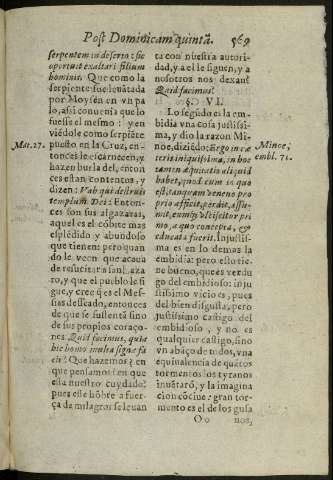 Post Dominicam quintã. 569
serpentem in deserto: sic
oportuit exaltari filium
hominis. Que como la
serpiente fue leuãtada
por Moysen en vn pa
lo, assi conuenia que lo
fuesse el mesmo: y en
viédole como serpiẽte
Mat. 27. puesto en la Cruz, en-
tonces le escarnecen, y
hazen burla del, enton
ces estan contentos, y
dizen: Vah qui destruis
templum Dei: Enton-
ces son sus algazaras,
aquel es el cõbite mas
esplẽdido y abundoso
que tienen: pero quan
do le veen que acaua
de resucitar a san Laza
ro, y que el pueblo le si
gue, y cree q̃ es el Mes-
sias desseado, entonces
de que se sustentã sino
de sus propios coraço-
nes. Quid facimus, quia
hic homo multa signa fa
cit? Que hazemos? en
que pensamos? en que
esta nuestro cuydado?
pues este hõbre a fuer-
ça de milagros se leuan
ta con nuestra autori-
dad, y a el le siguen, y a
nosotros nos dexan?
Quid facimus?
§. VI.
Lo segũdo es la em
bidia vna cosa justissi-
ma, y dio la razon Mi-
noe, diziẽdo: Ergo in cæ Minoe,
teris iniquissima, in hoc embl. 71.
tamen æquitatis aliquid
habet, quod eum in quo
est, tanquam veneno pro
prio afficit, perdit, assu-
mit, eumq́; vlciscitor pri
mo, a quo concepta, &
educata fuerit. Injustissi
ma es en lo demas la
embidia: pero esto tie-
ne bueno, que es verdu
go del embidioso: in ju
stissimo vicio es, pues
del bien disgusta, pero
justissimo castigo del
embidioso, y no es
qualquier castigo, sino
vn abaço de todos, vna
equiualencia de quãtos
tormentos los tyranos
inuẽtarõ, y la imagina
cion cõciue: gran tor-
mento es el de los gusa
O o nos,